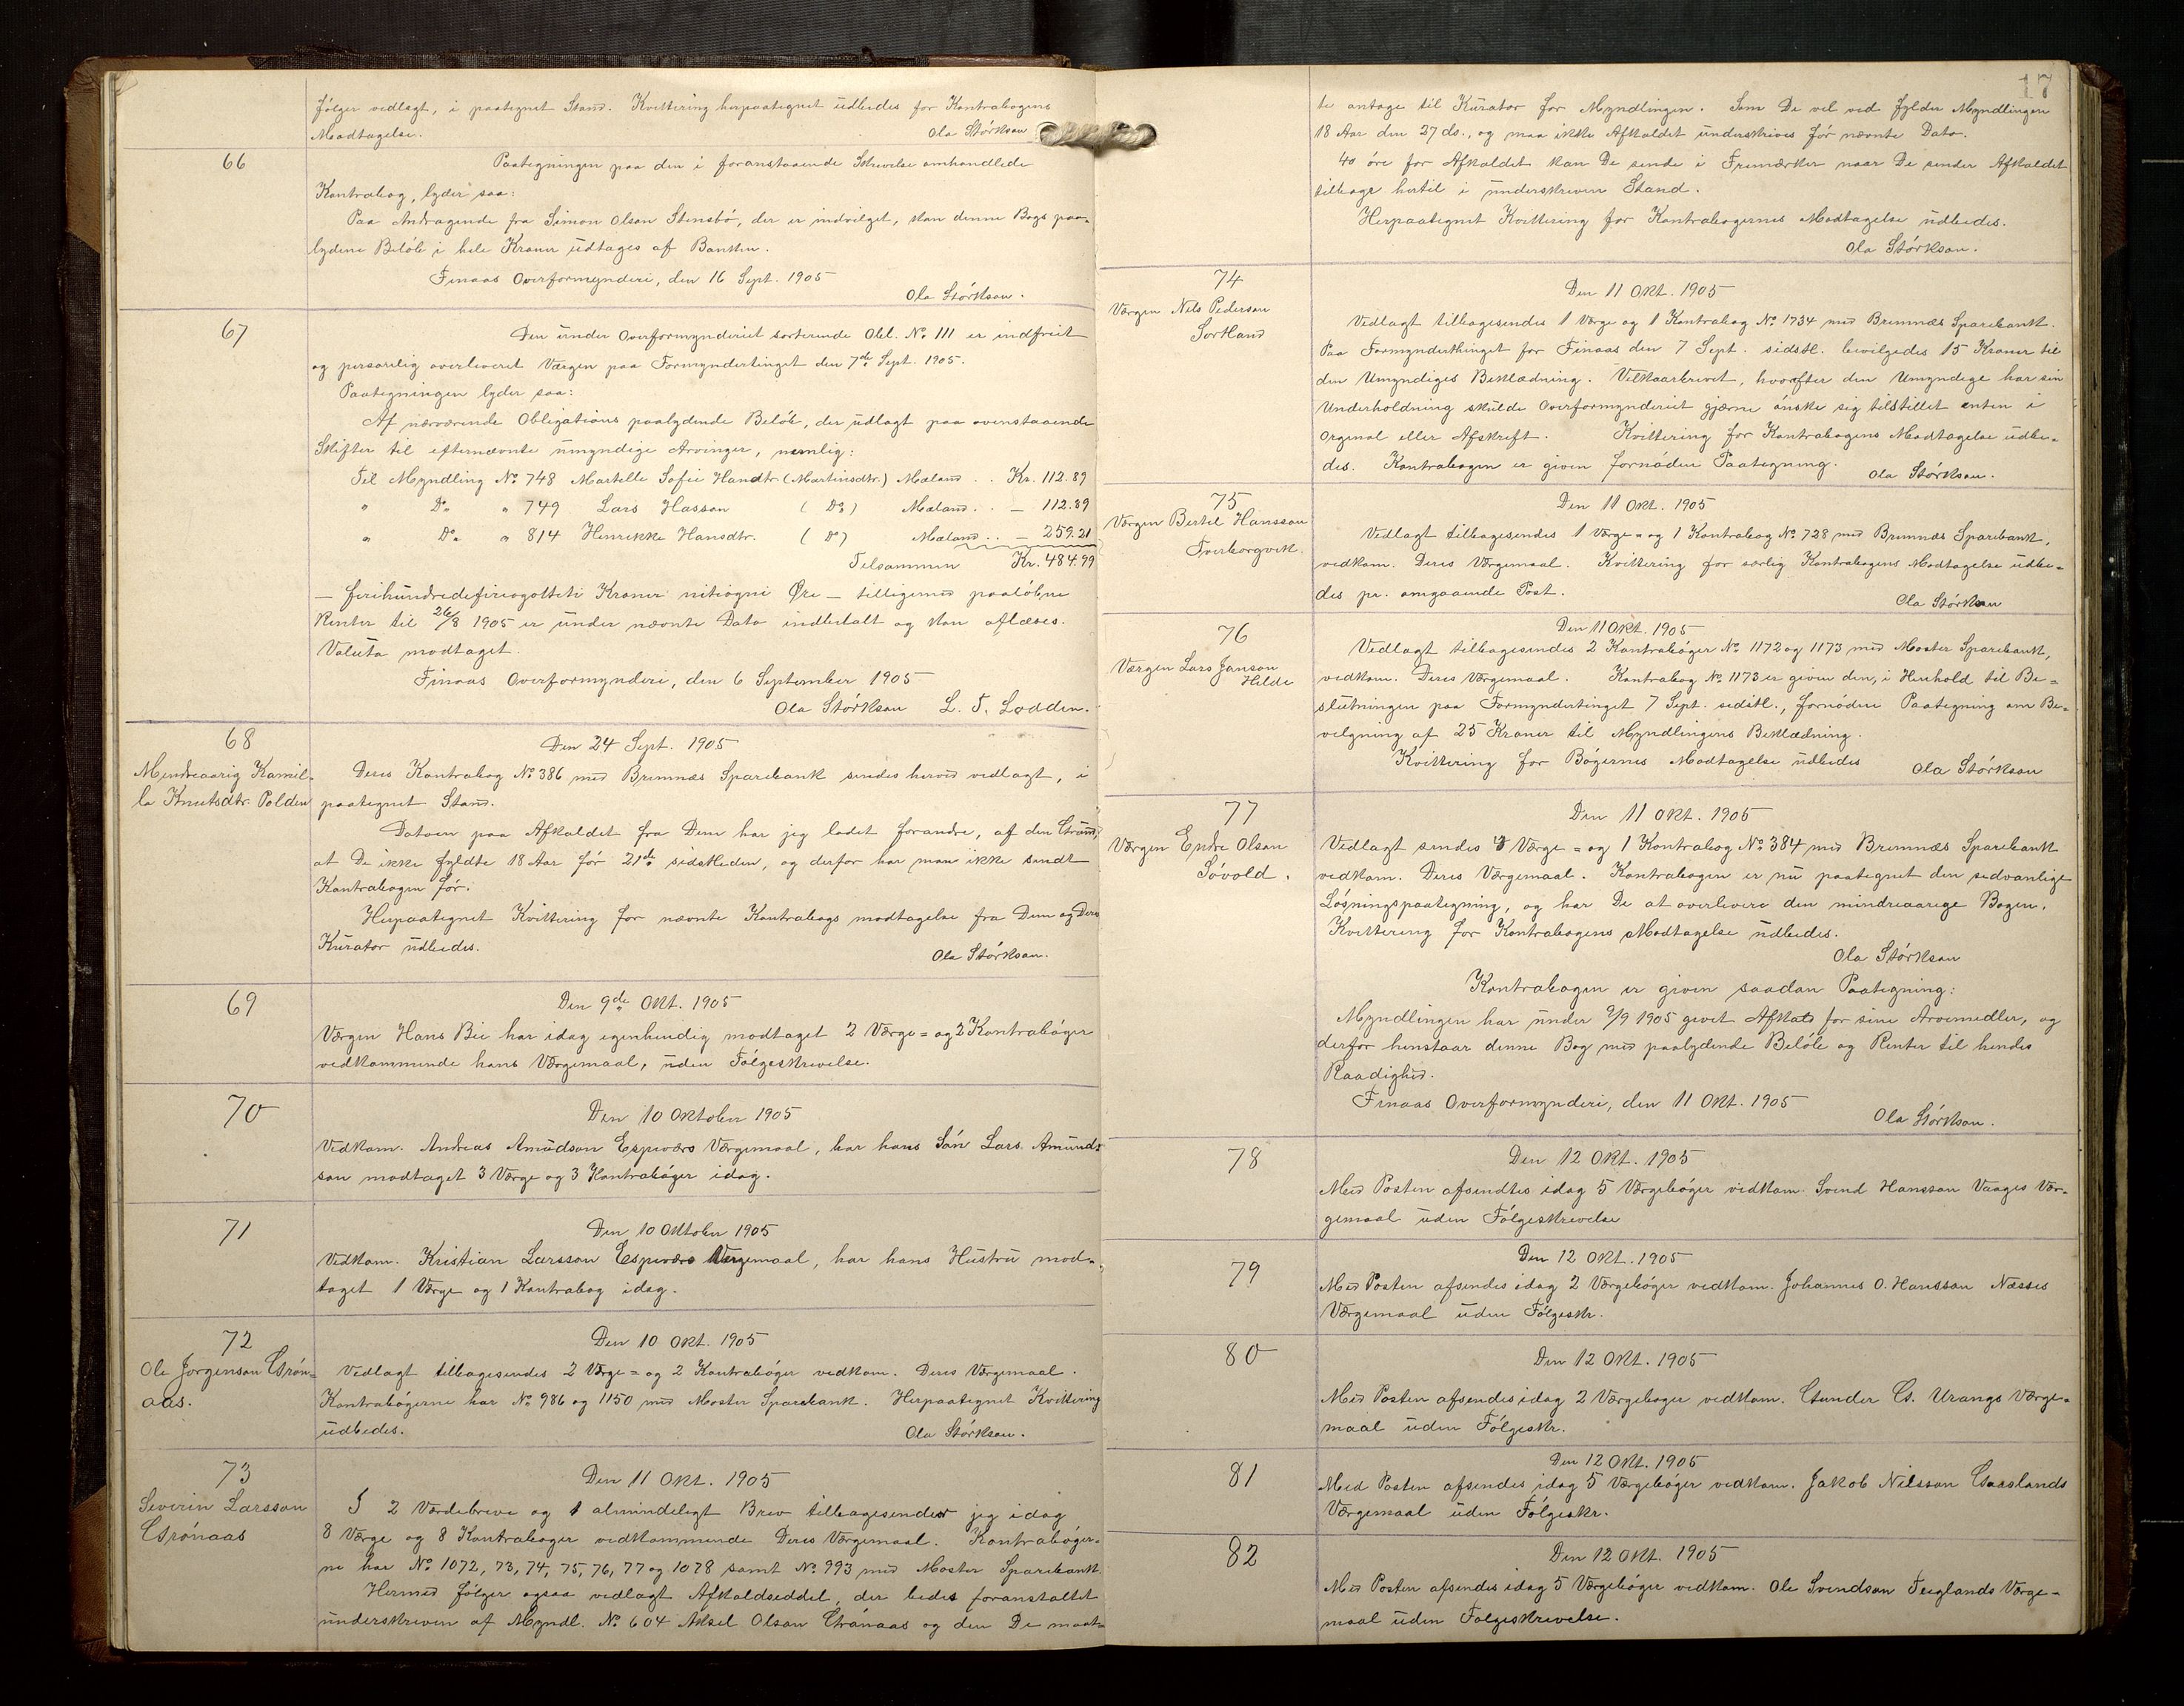 følger vedlagt, i paategnet Stand. Kvittering herpaategnet udbedes for Kontrabogens
Modtagelse. Ola Størkson
66
Paategningen paa den i foranstaaende Skrivelse omhandlede
Kontrabog, lyder saa:
Paa Andragende fra Simon Olson Stensbø, der er indvilget, kan denne Bogs paa-
lydene Beløb i hele Kroner udtages af Banken.
Finaas Overformynderi, den 16 Sept. 1905
Ola Størkson.
67
Den under Overformynderiet sorterende Obl. No 111 er indfriet
og personlig overleveret Værgen paa Formyndertinget den 7de Sept. 1905.
Paategningen lyder saa:
Af nærværende Obligations paalydende Beløb, der udlagt paa ovenstaaende
Skifter til efternævnte umyndige Arvinger, nemlig:
Til Myndling No 748 Martelle Sofie Hansdtr. (Martinsdtr.) Mæland . . Kr. 112.89
" Do " 749 Lars Hasson ( Do ) Mæland . . — 112.89
" Do " 814 Henrikke Hansdtr. ( Do ) Mæland . . — 259.21
Tilsammen Kr. 484.99
— firehundredefireogotteti Kroner nitiogni Øre — tilligemed paaløbne
Renter til 26/8 1905 er under nævnte Dato indbetalt og kan aflæses.
Valuta modtaget.
Finaas Overformynderi, den 6 September 1905
Ola Størkson L. T. Lodden.
68
Mindreaarig Kamil-
la Knutsdtr. Polden
Den 24 Sept. 1905
Deres Kontrabog No 386 med Bremnæs Sparebank sendes herved vedlagt, i
paategnet Stand.
Datoen paa Afkaldet fra Dem har jeg ladet forandre, af den Grund,
at De ikke fyldte 18 Aar før 21de sidstleden, og derfor har man ikke sendt
Kontrabogen før.
Herpaategnet Kvittering for nævnte Kontrabogs modtagelse fra Dem og Deres
Kurator udbedes.
Ola Størkson.
69
Den 9de Okt. 1905
Værgen Hans Bie har idag egenhendig modtaget 2 Værge= og 2 Kontrabøger
vedkommende hans Værgemaal, uden Følgeskrivelse.
70
Den 10 Oktober 1905
Vedkom. Andreas Amudson Espeværs Værgemaal, har hans Søn Lars Amund=
son modtaget 3 Værge og 3 Kontrabøger idag.
71
Den 10 Oktober 1905
Vedkom. Kristian Larsson Espeværs Værgemaal, har hans Hustru mod-
taget 1 Værge og 1 Kontrabog idag.
72
Ole Jørgenson Grøn=
aas.
Den 10 Okt. 1905
Vedlagt tilbagesendes 2 Værge= og 2 Kontrabøger vedkom. Deres Værgemaal.
Kontrabøgerne har No 986 og 1150 med Moster Sparebank. Herpaategnet Kvittering
udbedes. Ola Størkson.
73
Severin Larsson
Grønaas
Den 11 Okt. 1905
I 2 Værdebreve og 1 almindeligt Brev tilbagesender jeg idag
8 Værge og 8 Kontrabøger vedkommende Deres Værgemaal. Kontrabøger-
ne har No 1072, 73, 74, 75, 76, 77 og 1078 samt No 993 med Moster Sparebank.
Hermed følger ogsaa vedlagt Afkaldseddel, der bedes foranstaltet
underskreven af Myndl. No 604 Aksel Olson Grønaas og den De maat-
17
te antage til Kurator for Myndlingen. Som De vel ved fylder Myndlingen
18 Aar den 27 ds., og maa ikke Afkaldet underskrives før nævnte Dato.
40 øre for Afkaldet kan De sende i Frimærker naar De sender Afkaldet
tilbage hertil i underskreven Stand.
Herpaategnet Kvittering for Kontrabøgernes Modtagelse udbedes.
Ola Størkson.
74
Værgen Nils Pederson
Sortland
Den 11 Okt. 1905
Vedlagt tilbagesendes 1 Værge og 1 Kontrabog No 1734 med Bremnæs Sparebank.
Paa Formynderthinget for Finaas den 7 Sept. sidstl. bevilgedes 15 Kroner til
den Umyndiges Beklædning. Vilkaarbrevet, hvorefter den Umyndige har sin
Underholdning skulde Overformynderiet gjærne ønske sig tilstillet enten i
Orginal eller Afskrift. Kvittering for Kontrabogens Modtagelse udbe-
des. Kontrabogen er given fornøden Paategning. Ola Størkson.
75
Værgen Bertel Hansson
Tverborgvik.
Den 11 Okt. 1905
Vedlagt tilbagesendes 1 Værge= og 1 Kontrabog No 728 med Bremnæs Sparebank,
vedkom. Deres Værgemaal. Kvittering for særlig Kontrabogens Modtagelse udbe-
des pr. omgaaende Post. Ola Størkson
76
Værgen Lars Janson
Hilde
Den 11 Okt. 1905
Vedlagt tilbagesendes 2 Kontrabøger No 1172 og 1173 med Moster Sparebank,
vedkom. Deres Værgemaal. Kontrabog No 1173 er given den, i Henhold til Be=
slutningen paa Formyndertinget 7 Sept. sidstl., fornødne Paategning om Be-
velgning af 25 Kroner til Myndlingens Beklædning.
Kvittering for Bøgernes Modtagelse udbedes Ola Størkson
77
Værgen Endre Olson
Søvold.
Den 11 Okt. 1905
Vedlagt sendes Værge= og 1 Kontrabog No 384 med Bremnæs Sparebank
vedkom. Deres Værgemaal. Kontrabogen er nu paategnet den sedvanlige
Løsningspaategning, og har De at overlevere den mindreaarige Bogen.
Kvittering for Kontrabogens Modtagelse udbedes.
Ola Størkson
Kontrabogen er given saadan Paategning:
Myndlingen har under 9/9 1905 givet Afkald for sine Arvemedler, og
derfor henstaar denne Bog med paalydende Beløb og Renter til hendes
Raadighed.
Finaas Overformynderi, den 11 Okt. 1905
Ola Størkson.
78
Den 12 Okt. 1905
Med Posten afsendtes idag 5 Værgebøger vedkom. Svend Hansson Vaages Vær-
gemaal uden Følgeskrivelse
79
Den 12 Okt. 1905
Med Posten afsendes idag 2 Værgebøger vedkom. Johannes O. Hansson Næsses
Værgemaal uden Følgeskr.
80
Den 12 Okt. 1905
Med Posten afsendes idag 2 Værgebøger vedkom. Gunder G. Urangs Værge-
maal uden Følgeskr.
81
Den 12 Okt. 1905
Med Posten afsendes idag 5 Værgebøger vedkom. Jakob Nilsson Gaaslands
Værgemaal uden Følgeskr.
82
Den 12 Okt. 1905
Med Posten afsendes idag 5 Værgebøger vedkom. Ole Svendson Teiglands Værge-
maal uden Følgeskrivelse.